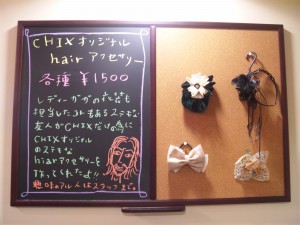 CHIXオリジナル
hair アクセサリー
各種 ¥1500
レディーガガの衣装も
担当したコトもあるステキな
友人がCHIXだけの為に
CHIXオリジナル
のステキな
hairアクセサリーを
作ってくれたよ!!
興味のアル人はスタッフまで。